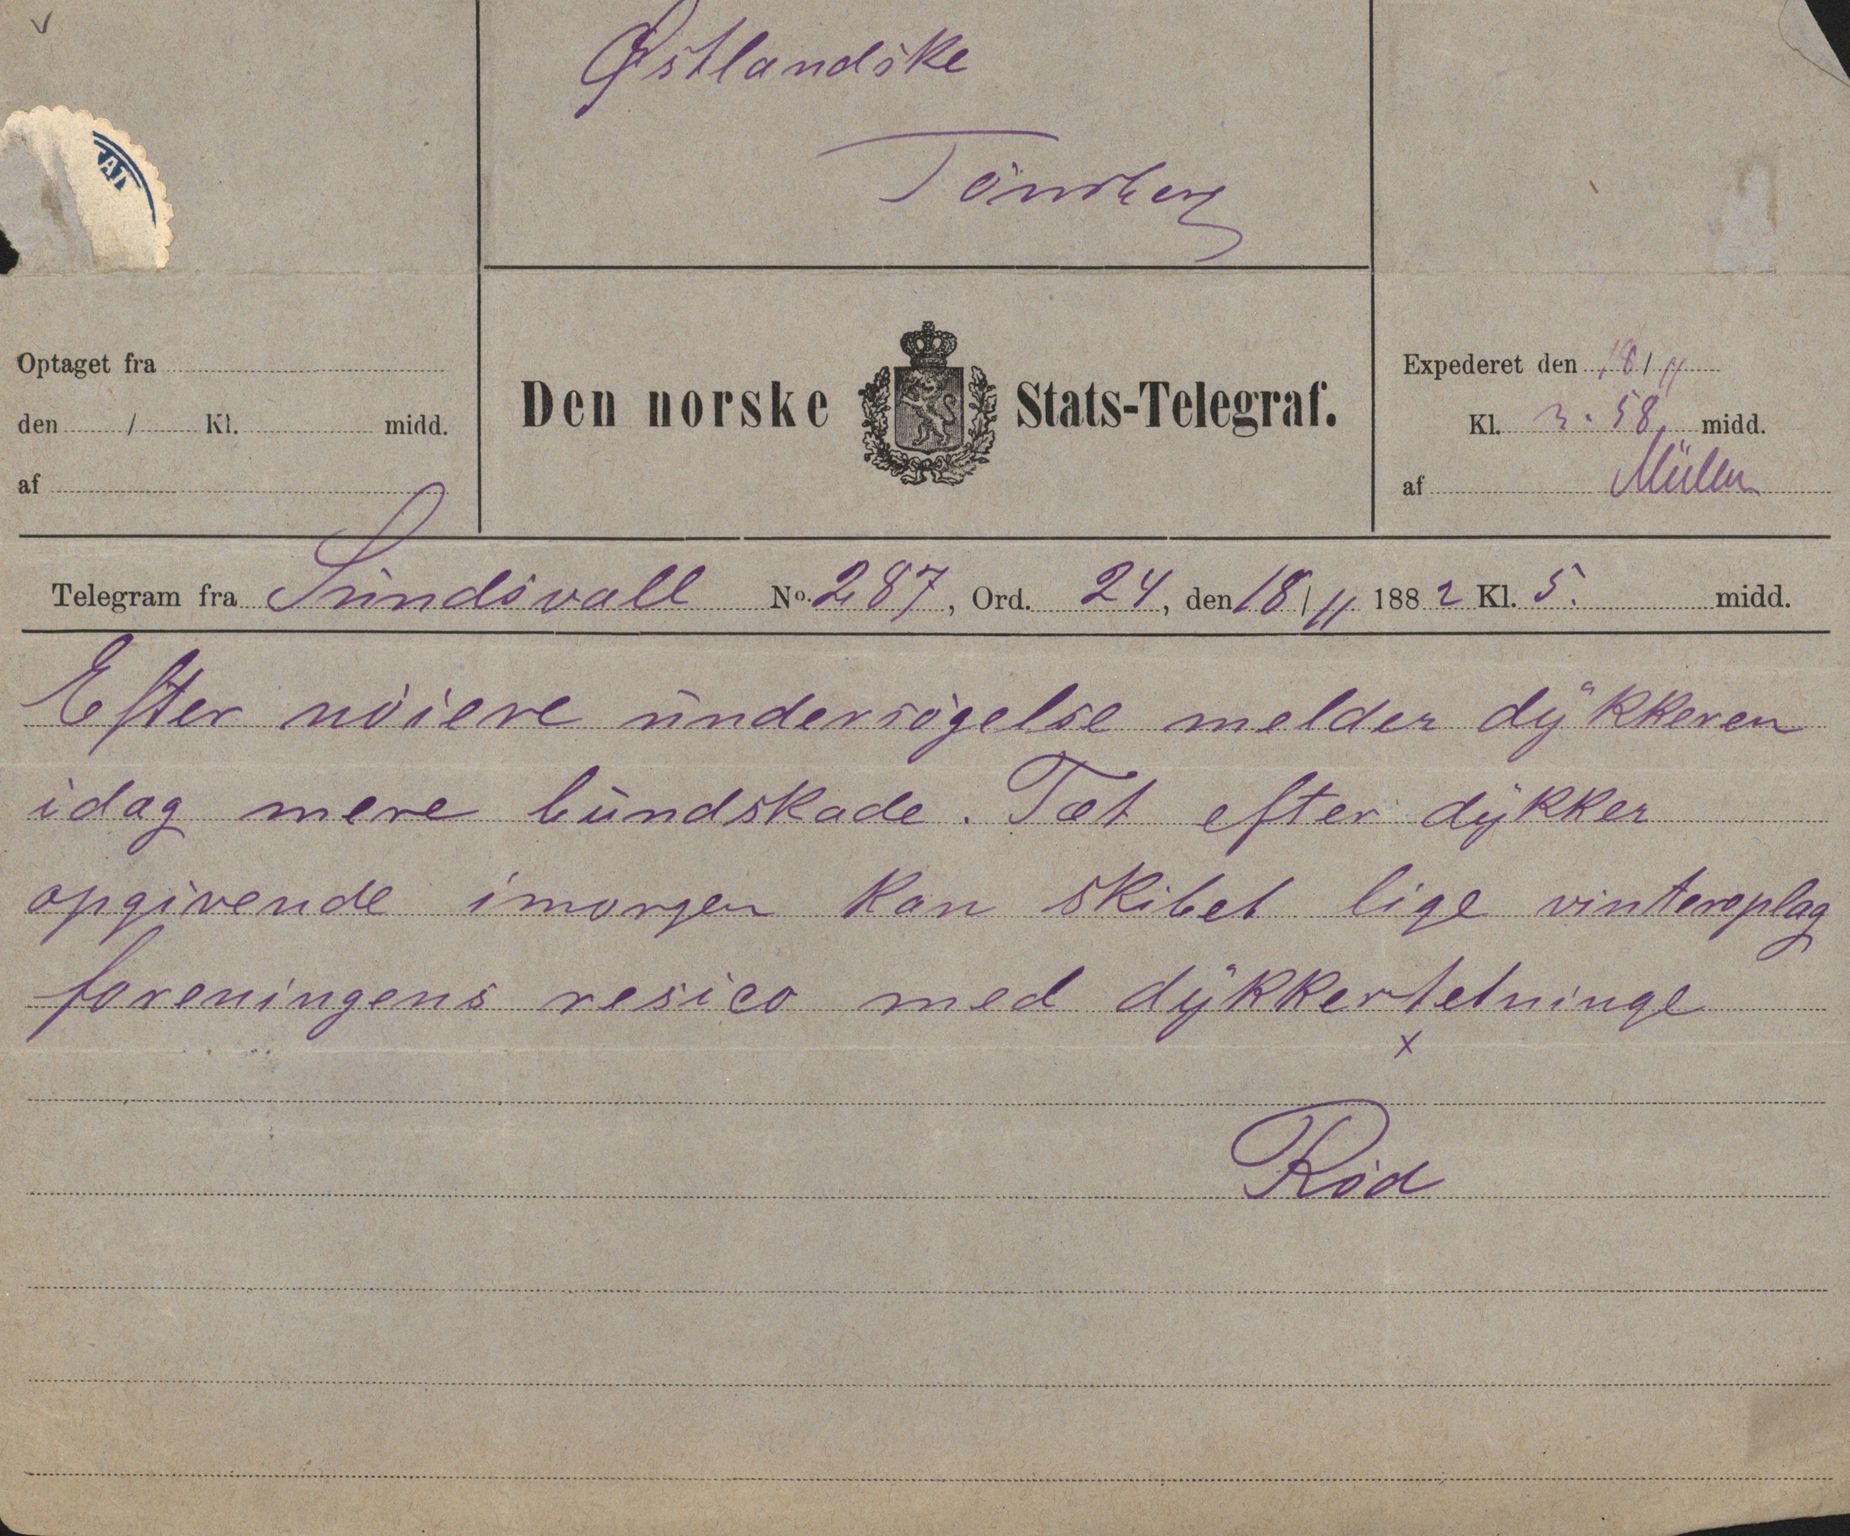 Østlandske
Tönsberg
Optaget fra
den / Kl. midd.
af
Den norske Stats-Telegraf.
Expederet den 18/11
Kl. 3.58 midd.
af Müller
Telegram fra Sundsvall No. 287, Ord. 24, den 18/11 1882 Kl. 5. midd.
Efter nöiere undersögelse melder dykkeren
idag mere bundskade. Tæt efter dykker
opgivende imorgen kan skibet lige vinteroplag
foreningens resico med dykkertetninge
x
Röd